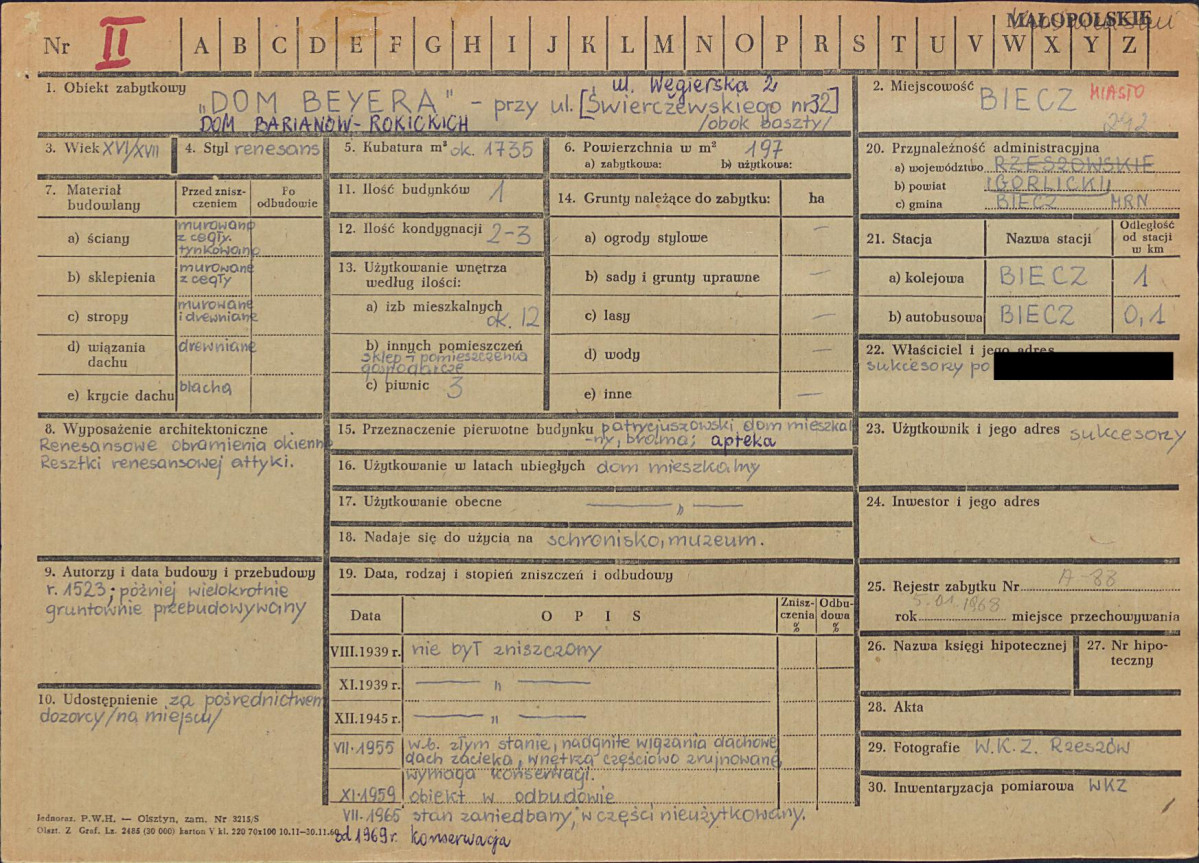 MAŁOPOLSKIE
Nr II A B C D E F G H I J K L M N O P R S T U V W X Y Z
1. Obiekt zabytkowy
ul. Węgierska 2
„DOM BEYERA" - przy ul. [Świerczewskiego nr 32]
DOM BARIANÓW-ROKICKICH
/obok baszty/
2. Miejscowość BIECZ MIASTO
292
3. Wiek XVI/XVII
4. Styl renesans
5. Kubatura m³ ok. 1735
6. Powierzchnia w m² 197
a) zabytkowa: b) użytkowa:
7. Materiał budowlany
Przed zniszczeniem
Po odbudowie
a) ściany
murowane
z cegły.
tynkowane
b) sklepienia
murowane
z cegły
c) stropy
murowane
i drewniane
d) wiązania dachu
drewniane
e) krycie dachu
blachą
11. Ilość budynków 1
12. Ilość kondygnacji 2-3
13. Użytkowanie wnętrza
według ilości:
a) izb mieszkalnych
ok. 12
b) innych pomieszczeń
sklep i pomieszczenia
gospodarcze
c) piwnic 3
14. Grunty należące do zabytku: ha
a) ogrody stylowe —
b) sady i grunty uprawne —
c) lasy —
d) wody —
e) inne —
20. Przynależność administracyjna
a) województwo RZESZOWSKIE
b) powiat GORLICKI
c) gmina BIECZ MRN
21. Stacja
Nazwa stacji
Odległość od stacji w km
a) kolejowa BIECZ 1
b) autobusowa BIECZ 0,1
22. Właściciel i jego adres
sukcesorzy po
8. Wyposażenie architektoniczne
Renesansowe obramienia okienne
Resztki renesansowej attyki.
15. Przeznaczenie pierwotne budynku patrycjuszowski dom mieszkal
-ny, brama; apteka
16. Użytkowanie w latach ubiegłych dom mieszkalny
17. Użytkowanie obecne — „ —
18. Nadaje się do użycia na schronisko, muzeum.
23. Użytkownik i jego adres sukcesorzy
24. Inwestor i jego adres
9. Autorzy i data budowy i przebudowy
r. 1523; później wielokrotnie
gruntownie przebudowywany
10. Udostępnienie za pośrednictwem
dozorcy /na miejscu/
19. Data, rodzaj i stopień zniszczeń i odbudowy
Data
O P I S
Zniszczenia %
Odbudowa %
VIII.1939 r. nie był zniszczony
XI.1939 r. — „ —
XII.1945 r. — „ —
VII.1955 w b. złym stanie, nadgniłe wiązania dachowe
dach zacieka, wnętrza częściowo zrujnowane
wymaga konserwacji.
XI.1959 obiekt w odbudowie
VII.1965 stan zaniedbany, w części nieużytkowany.
od 1969 r. konserwacja
25. Rejestr zabytku Nr A-88
5.01.1968
rok miejsce przechowywania
26. Nazwa księgi hipotecznej
27. Nr hipoteczny
28. Akta
29. Fotografie W.K.Z. Rzeszów
30. Inwentaryzacja pomiarowa WKZ
Jednoraz. P.W.H. — Olsztyn, zam. Nr 3215/S
Olszt. Z Graf. Lz. 2485 (30 000) karton V kl. 220 70x100 10.11—30.11.60